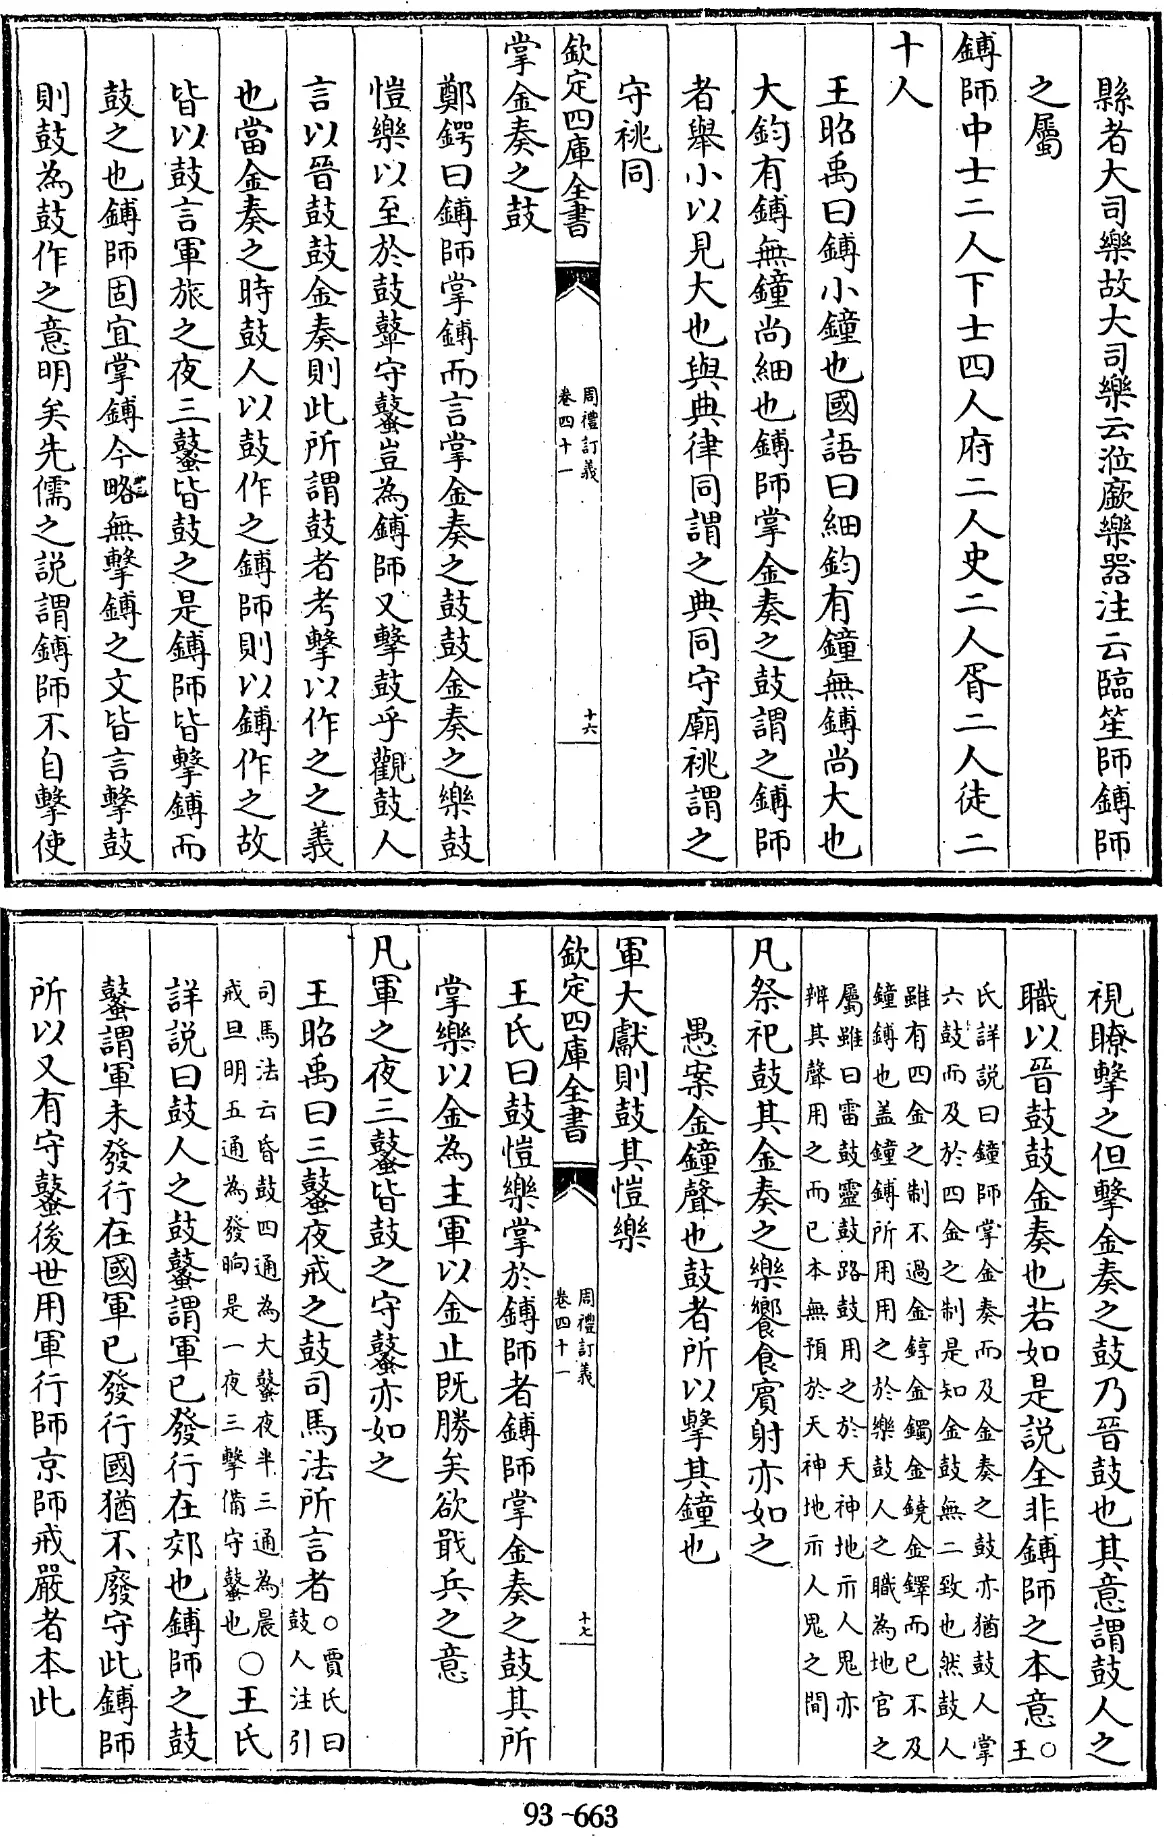 縣者大司樂故大司樂云涖廞樂器注云臨笙師鎛師
之屬
鎛師中士二人下士四人府二人史二人胥二人徒二
十人
王昭禹曰鎛小鐘也國語曰細鈞有鐘無鎛尚大也
大鈞有鎛無鐘尚細也鎛師掌金奏之鼓謂之鎛師
者舉小以見大也與典律同謂之典同守廟祧謂之
守祧同
欽定四庫全書
周禮訂義
卷四十一
十六
掌金奏之鼓
鄭鍔曰鎛師掌鎛而言掌金奏之鼓鼓金奏之樂鼓
愷樂以至於鼓鼜守鼜豈為鎛師又擊鼓乎觀鼓人
言以晉鼓鼓金奏則此所謂鼓者考擊以作之之義
也當金奏之時鼓人以鼓作之鎛師則以鎛作之故
皆以鼓言軍旅之夜三鼜皆鼓之是鎛師皆擊鎛而
鼓之也鎛師固宜掌鎛今略無擊鎛之文皆言擊鼓
則鼓為鼓作之意明矣先儒之説謂鎛師不自擊使
視瞭擊之但擊金奏之鼓乃晉鼓也其意謂鼓人之
職以晉鼓鼓金奏也若如是説全非鎛師之本意○王
氏詳説曰鐘師掌金奏而及金奏之鼓亦猶鼓人掌
六鼓而及於四金之制是知金鼓無二致也然鼓人
雖有四金之制不過金錞金鐲金鐃金鐸而已不及
鐘鎛也盖鐘鎛所用用之於樂鼓人之職為地官之
屬雖曰雷鼓靈鼓路鼓用之於天神地示人鬼亦
辨其聲用之而已本無預於天神地示人鬼之間
凡祭祀鼓其金奏之樂饗食賓射亦如之
愚案金鐘聲也鼓者所以擊其鐘也
軍大獻則鼓其愷樂
欽定四庫全書
周禮訂義
卷四十一
十七
王氏曰鼓愷樂掌於鎛師者鎛師掌金奏之鼓其所
掌樂以金為主軍以金止既勝矣欲戢兵之意
凡軍之夜三鼜皆鼓之守鼜亦如之
王昭禹曰三鼜夜戒之鼓司馬法所言者○賈氏曰
鼓人注引
司馬法云昏鼓四通為大鼜夜半三通為晨
戒旦明五通為發昫是一夜三擊備守鼜也○王氏
詳説曰鼓人之鼓鼜謂軍已發行在郊也鎛師之鼓
鼜謂軍未發行在國軍已發行國猶不廢守此鎛師
所以又有守鼜後世用軍行師京師戒嚴者本此
93-663